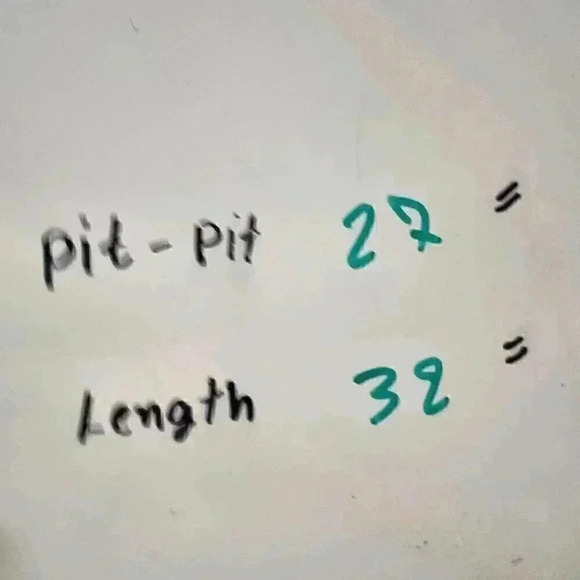 pit - pit 27 "
Length 32 "